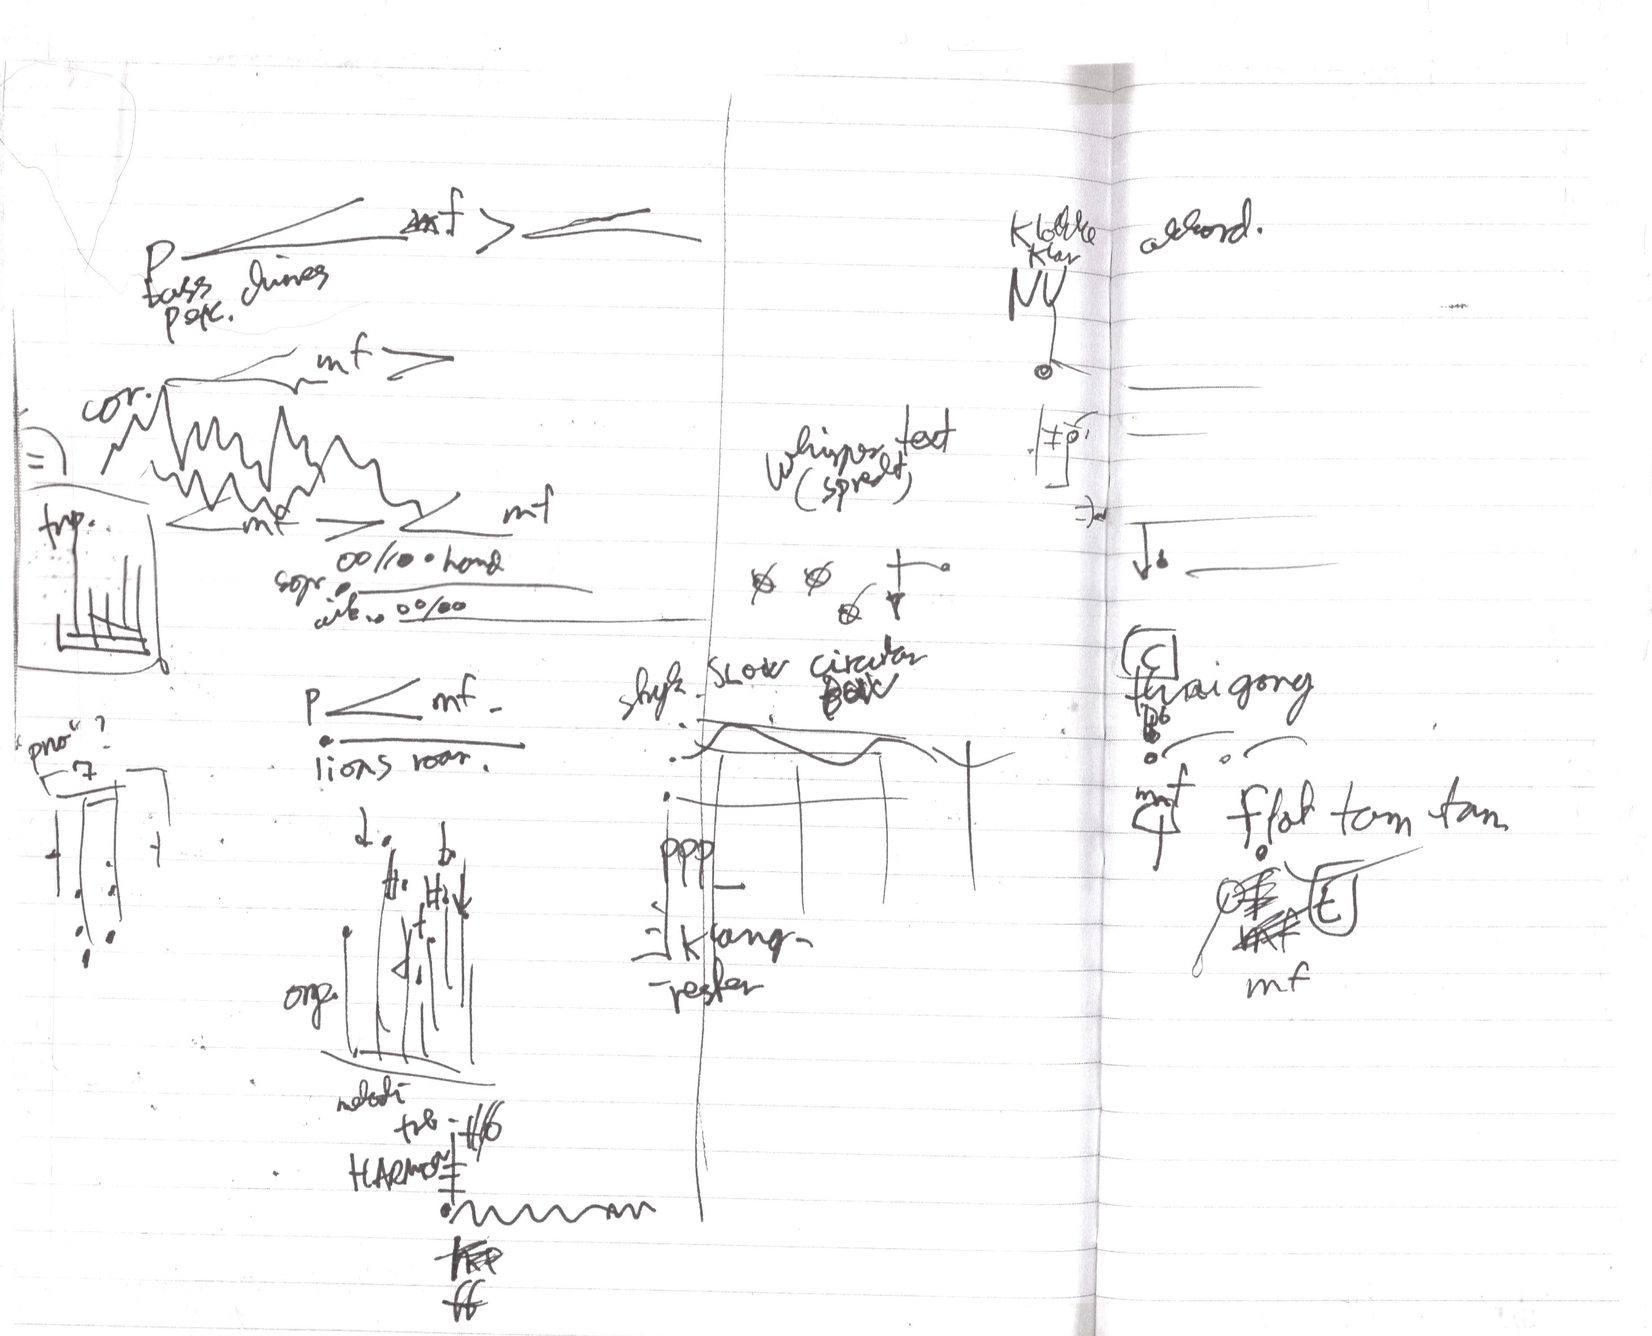 p mf
bass chimes
perc.
mf
cor.
trp.
mf mf
00/10 • hand
sopr.
00/00
p mf
lions roar.
pno ?
7
org.
melodi
trb.
HARMON
ff
whisper text
(spredt)
stryk. SLOW circular
ppp
Klang-
rester
Klokke akkord.
Klar
NY
C
thai gong
mf
flat tam tam
mf